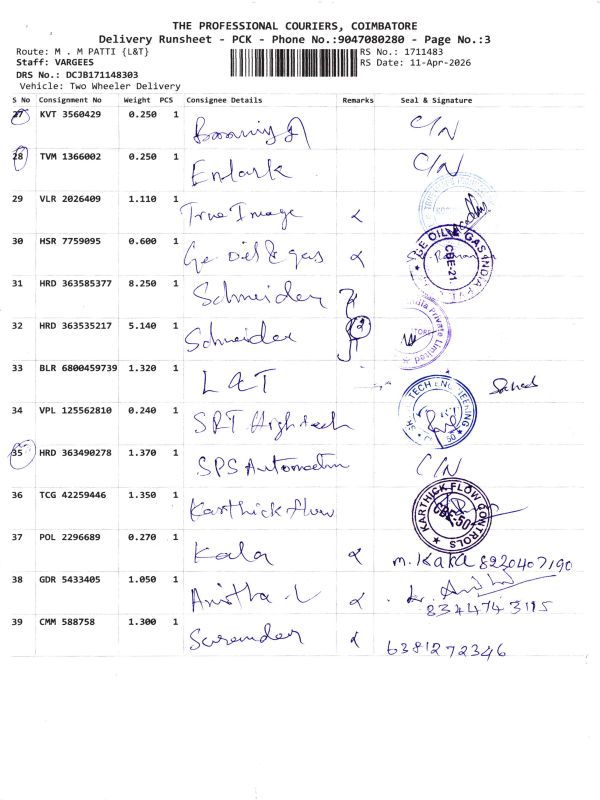 THE PROFESSIONAL COURIERS, COIMBATORE
Delivery Runsheet - PCK - Phone No.:9047080280 - Page No.:3
Route: M . M PATTI {L&T} RS No.: 1711483
Staff: VARGEES RS Date: 11-Apr-2026
DRS No.: DCJB171148303
Vehicle: Two Wheeler Delivery
S No Consignment No Weight PCS Consignee Details Remarks Seal & Signature
27 KVT 3560429 0.250 1 C/N
28 TVM 1366002 0.250 1 C/N
29 VLR 2026409 1.110 1 True Image
30 HSR 7759095 0.600 1 Ge oil & gas GE OIL & GAS INDIA PVT. CBE-21.
31 HRD 363585377 8.250 1 Schneider
32 HRD 363535217 5.140 1 Schneider 2 India Private Limited
33 BLR 6800459739 1.320 1 L&T
34 VPL 125562810 0.240 1 SRT High tech TECH ENGINEERING
35 HRD 363490278 1.370 1 SPS Automation C/N
36 TCG 42259446 1.350 1 Karthick flow KARTHICK FLOW CONTROLS CBE-50
37 POL 2296689 0.270 1 Kala M. Kala 8220407190
38 GDR 5433405 1.050 1 Anitha L
8344743115
39 CMM 588758 1.300 1 Surender 6381272346